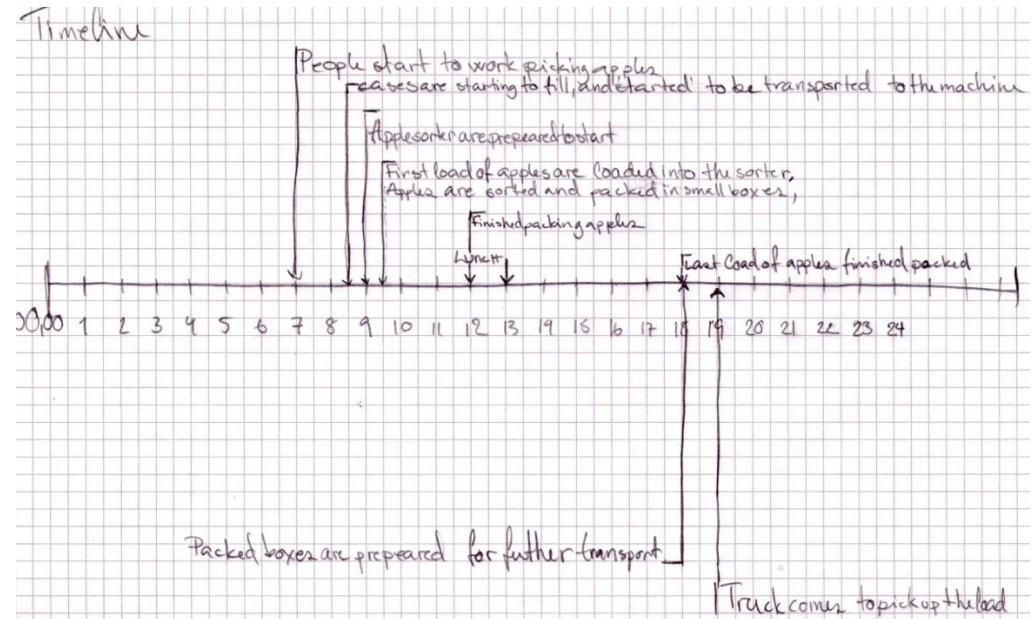 Timeline
People start to work picking apples
cases are starting to fill, and started to be transported to the machine
Applesorter are prepeared to start
First load of apples are loaded into the sorter,
Apples are sorted and packed in small boxes,
Finished packing apples
Last load of apples finished packed
00,00 1 2 3 4 5 6 7 8 9 10 11 12 13 14 15 16 17 18 19 20 21 22 23 24
Packed boxes are prepeared for futher transport
Truck comes to pick up the load